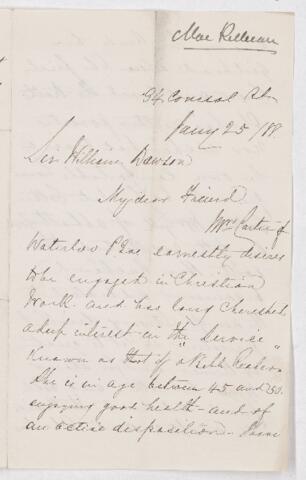 Mac Killican
94 Consol St
Jany 25 / 88
Sir William Dawson
My dear Friend
Mrs Carter of
Waterloo P Que earnestly desires
to be engaged in Christian
Work and has long cherished
a deep interest in the "Service"
Known as that of a Bible Reader.
She is in age between 45 and 50.
enjoying good health - and of
an active disposition -